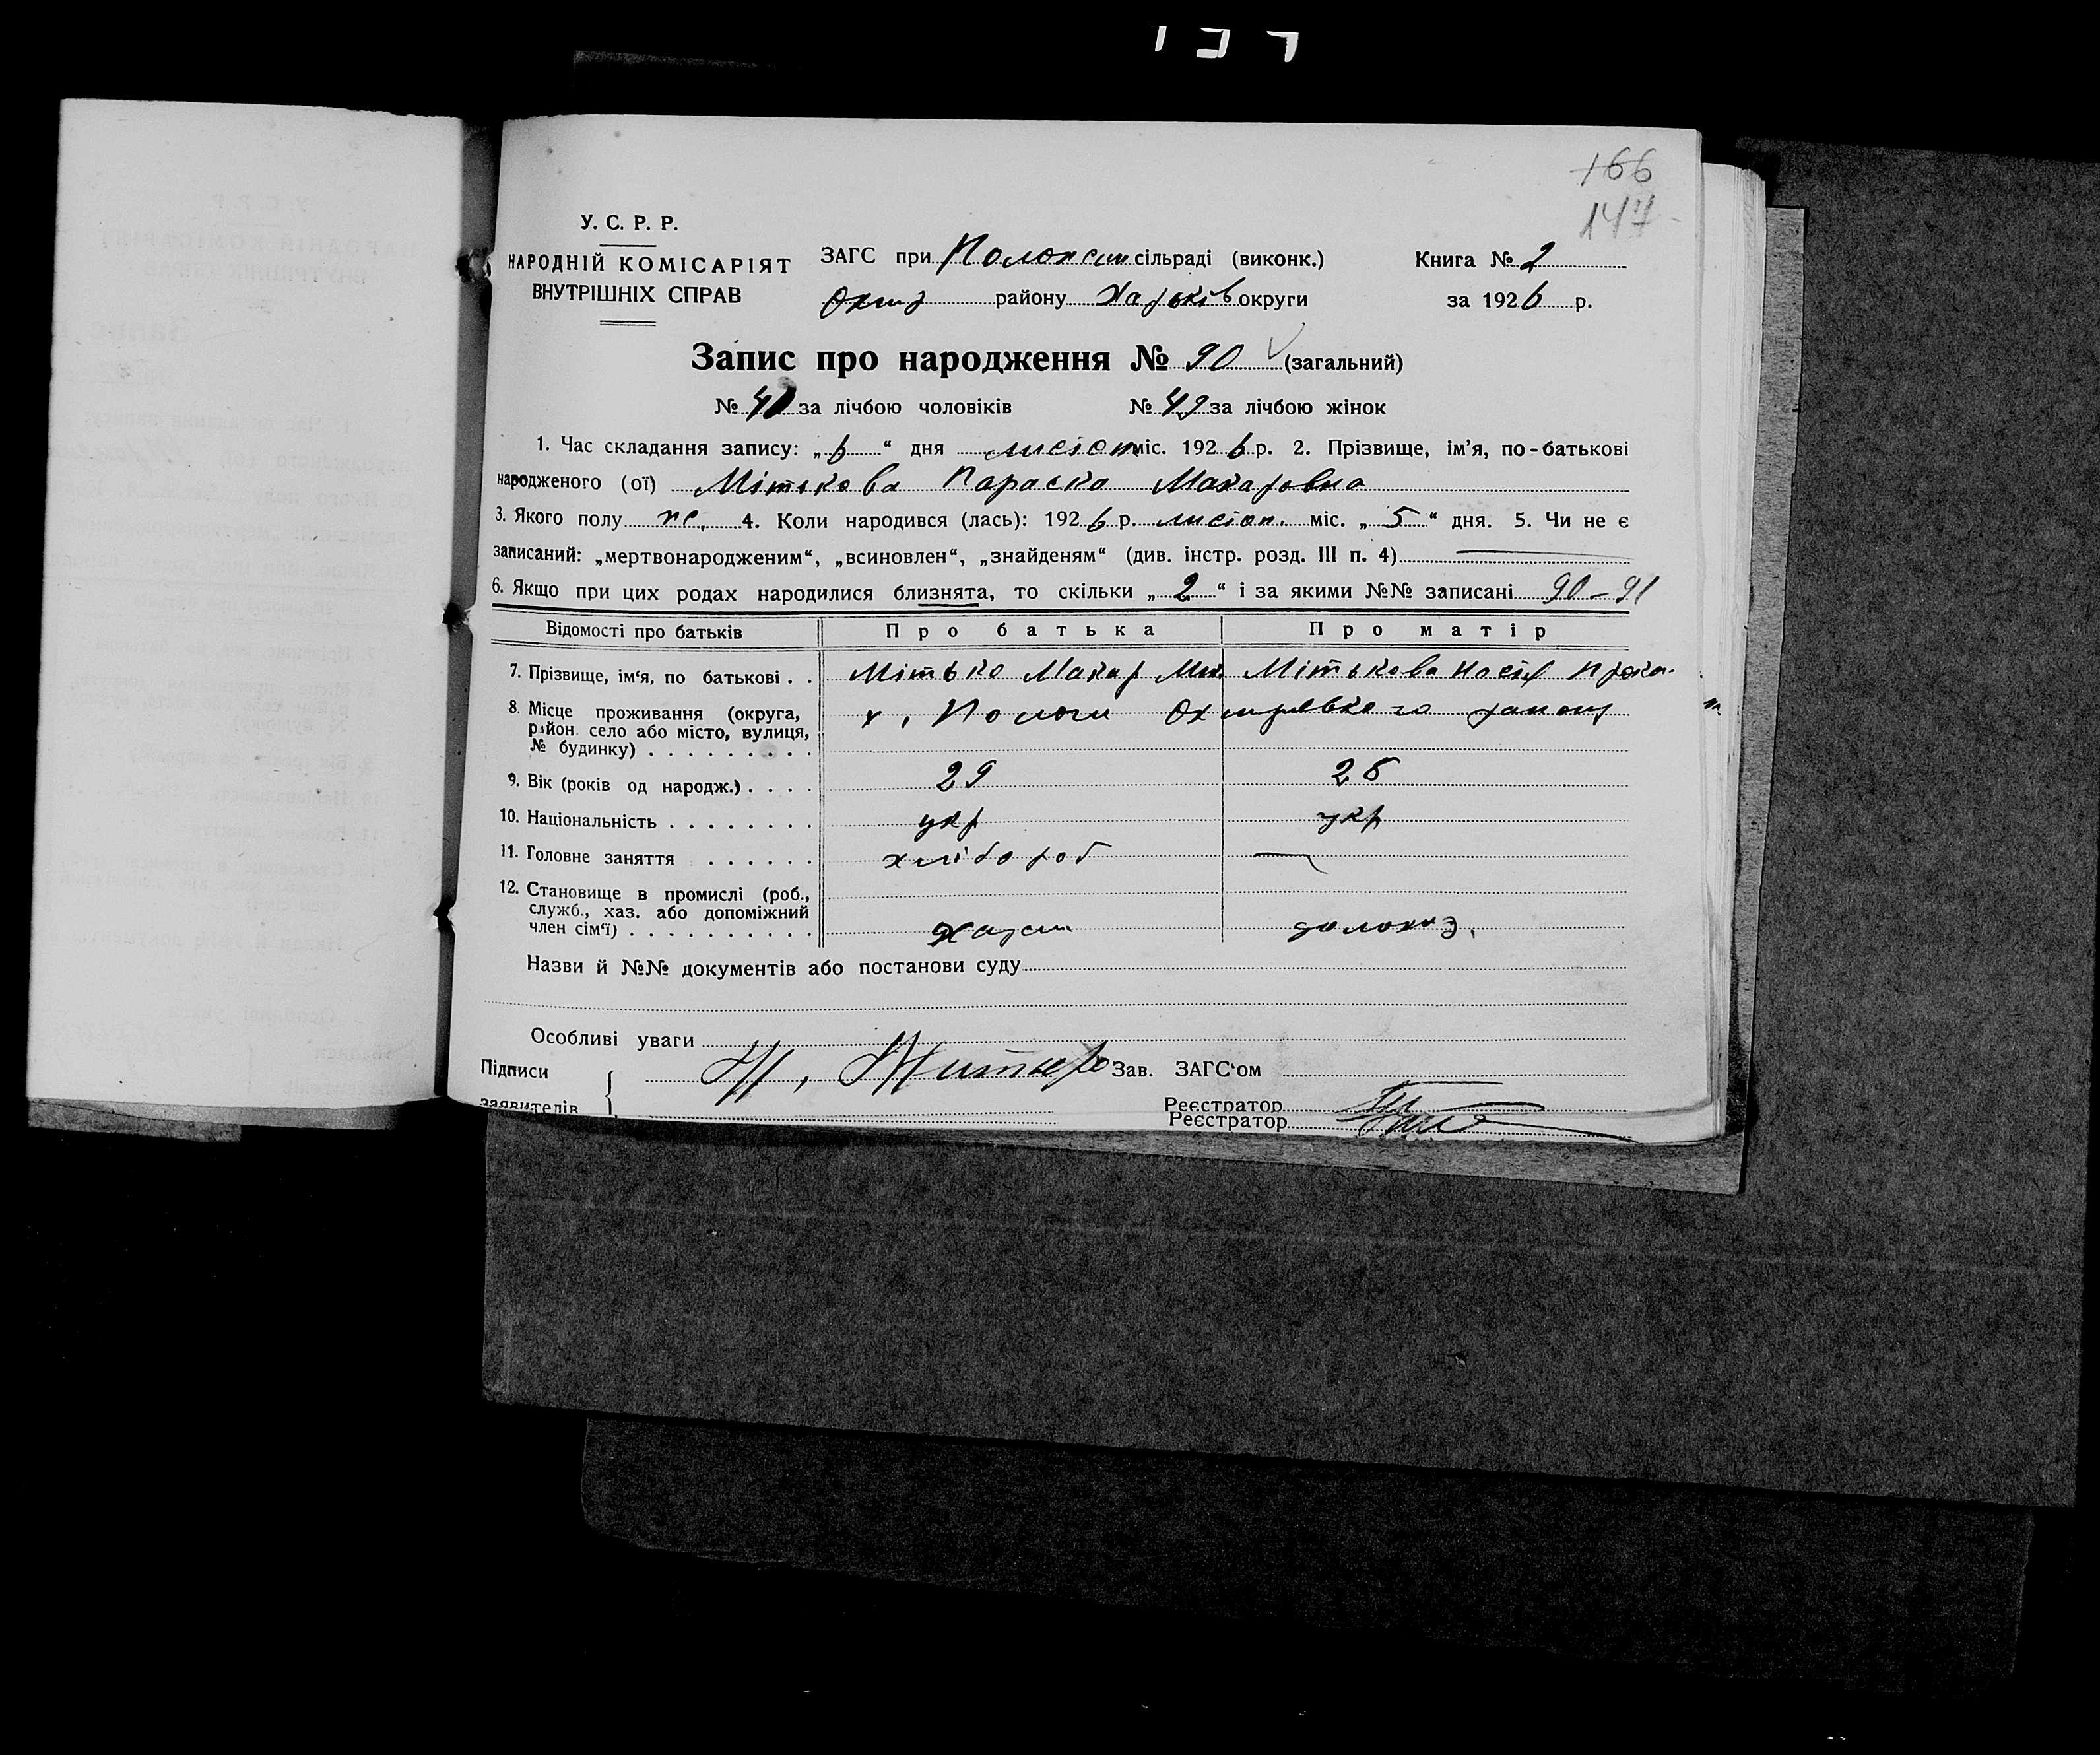 166
147
У. С. Р. Р.
НАРОДНІЙ КОМІСАРІЯТ
ВНУТРІШНІХ СПРАВ
ЗАГС при сільраді (виконк.)
району Харьків округи
Книга № 2
за 1926 р.
Запис про народження № 90 (загальний)
№ 41 за лічбою чоловіків № 49 за лічбою жінок
1. Час складання запису: „6“ дня листоп міс. 1926 р. 2. Прізвище, ім’я, по-батькові
народженого (ої) Мітькова Параска Макаровна
3. Якого полу ж. 4. Коли народився (лась): 1926 р. листоп. міс. „5“ дня. 5. Чи не є
записаний: „мертвонародженим“, „всиновлен“, „знайденям“ (див. інстр. розд. III п. 4)
6. Якщо при цих родах народилися близнята, то скільки „2“ і за якими №№ записані 90–91
Відомості про батьків Про батька Про матір
7. Прізвище, ім‘я, по батькові . . Мітько Макар Мик. Мітькова Наст
8. Місце проживання (округа, х. Пологи району
район село або місто, вулиця,
№ будинку) . . . . . . . . .
9. Вік (років од народж.) . . . . 29 26
10. Національність . . . . . . . . укр укр
11. Головне заняття . . . . . . хлібороб —
12. Становище в промислі (роб.,
служб., хаз. або допоміжний
член сім‘ї) . . . . . . . . . .
Назви й №№ документів або постанови суду
Особливі уваги
Підписи М. Митько Зав. ЗАГС‘ом
заявителів Реєстратор
Реєстратор